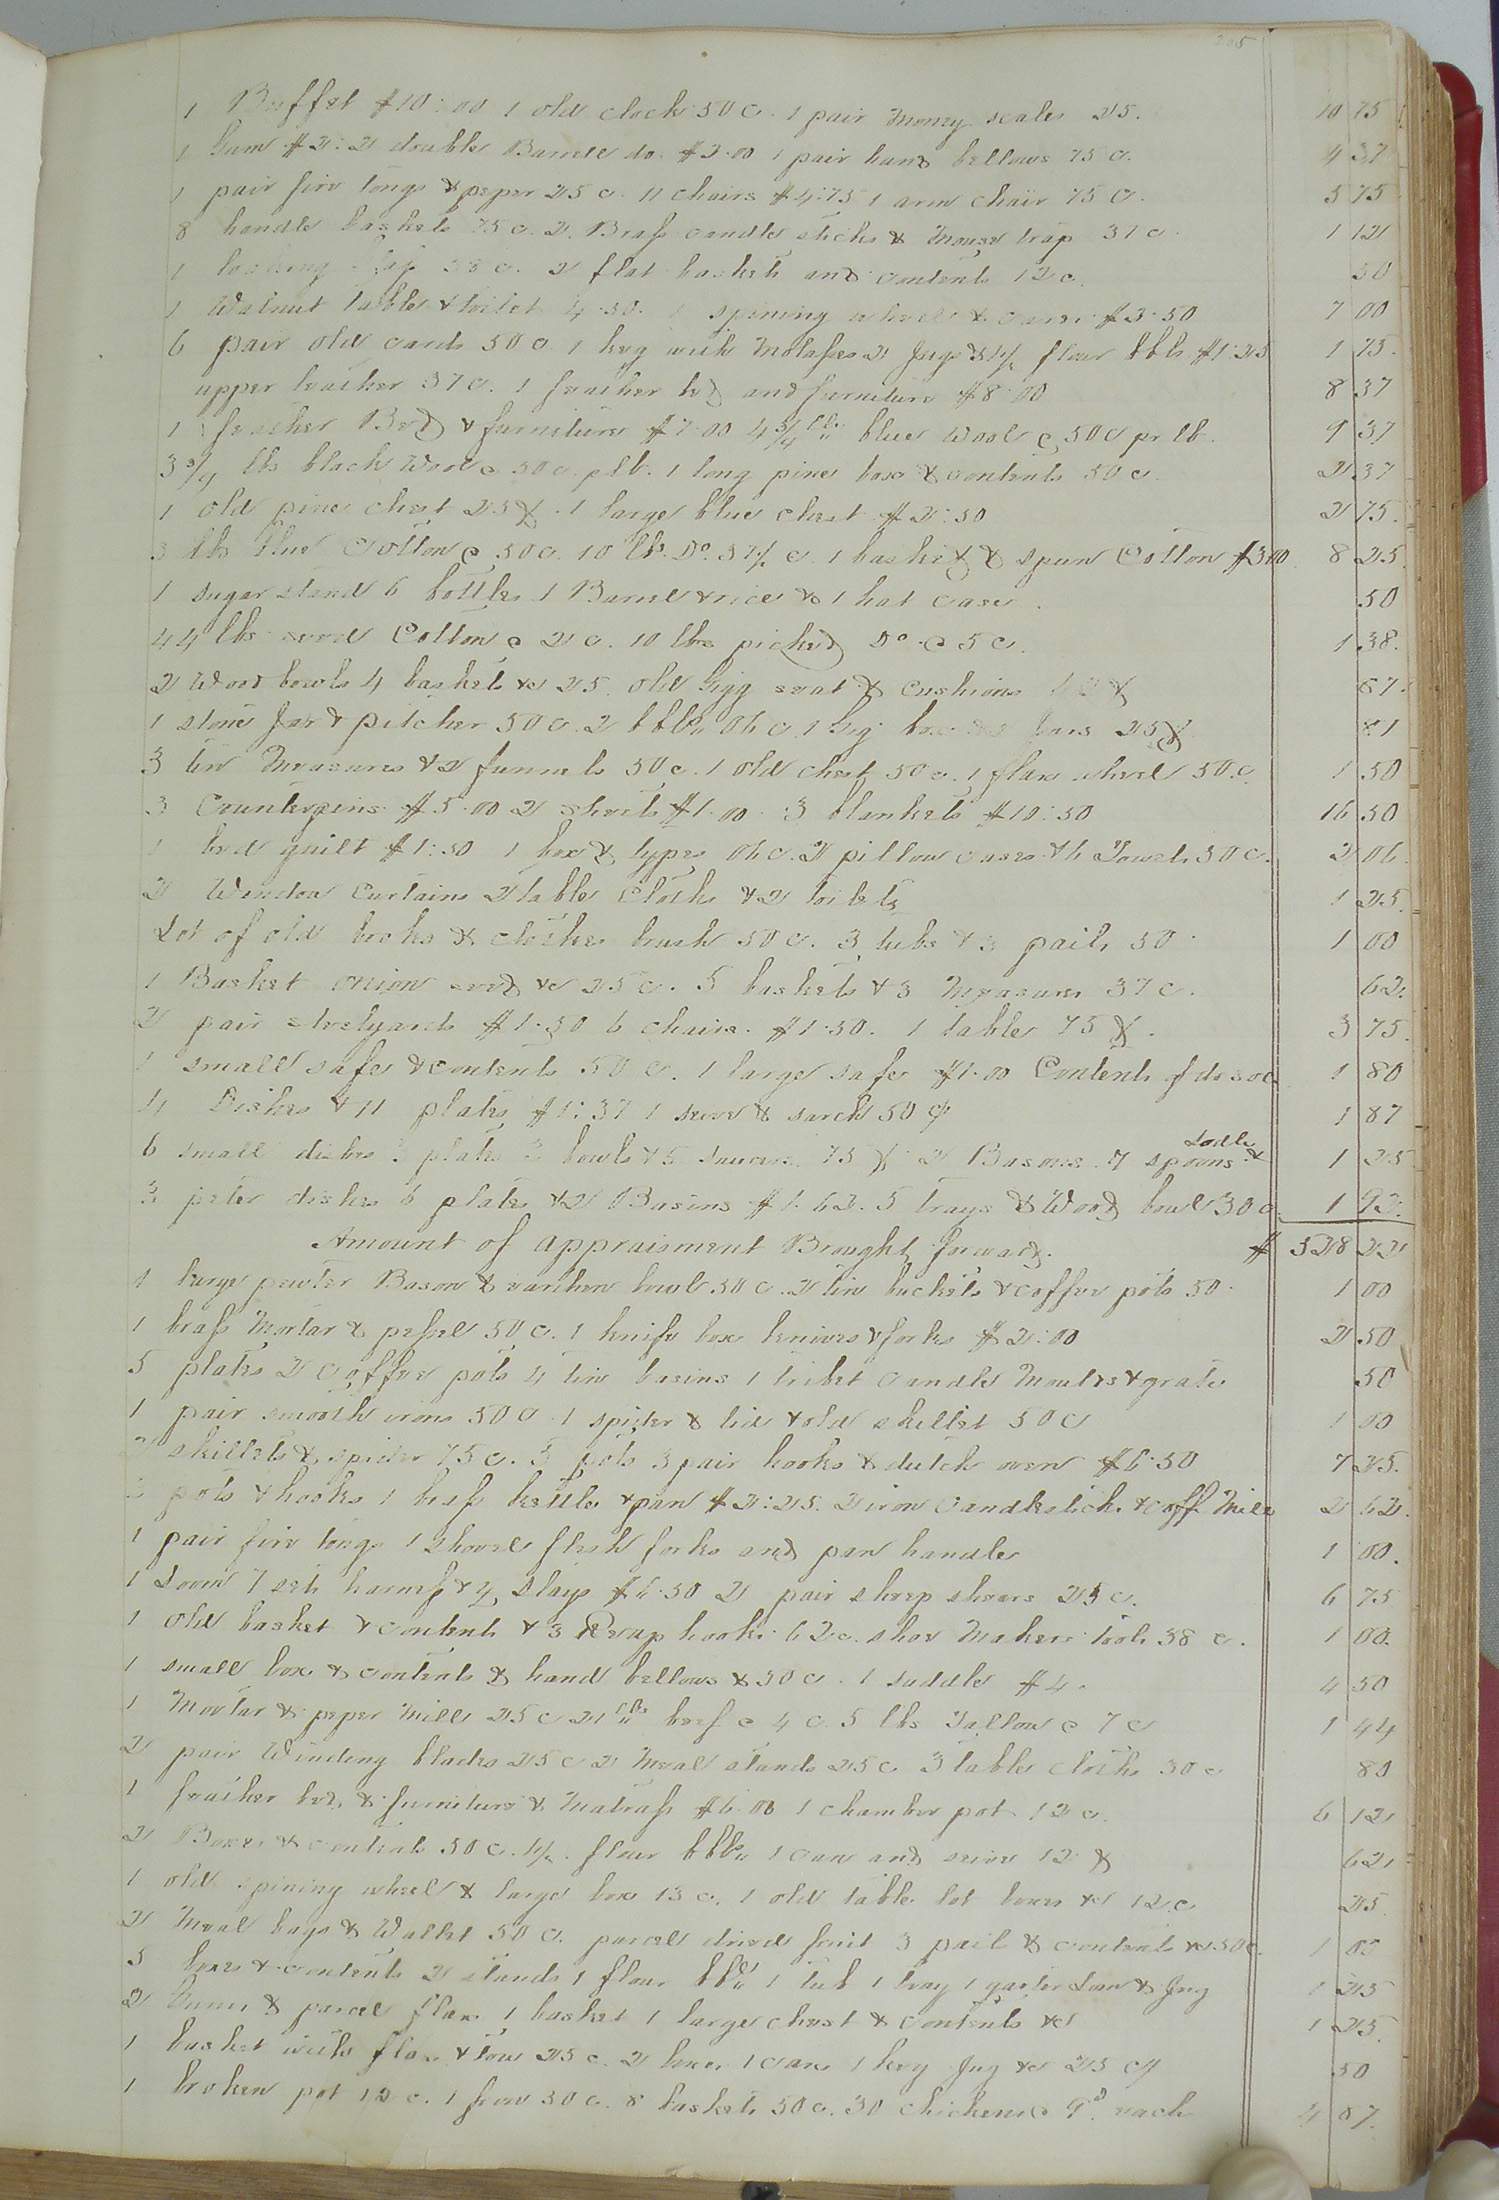 205
1 Buffet $10:00 1 old clock 50 c. 1 pair money scales 25. 10 75
1 Gum $2: 2 double Barrell do. $3.00 1 pair hand bellows 75 c. 4 37
1 pair fire tongs & peper 25 c. 11 chairs $4:75 1 arm chair 75 c. 5 75
8 handle baskets 75 c. 2 Brass candle sticks & mouse trap 37 c. 1 12
1 looking 38 c. 2 flat baskets and contents 12 c. 50
1 Walnut table & toilet 4.50. spining wheel & $3.50 7 00
6 pair old cards 50 c 1 keg with Molasses 2 Jugs & flour bbls $1:25 1 75.
upper leather 37 c. 1 feather bed and furniture $8.00 8 37
1 feather Bed & furniture $7.00 4 3/4 lbs blue Wool @ 50c pr lb. 9 37
3 3/4 lbs black Wool @ 50c plb. 1 long pine box & contents 50 c 2 37
1 old pine chest 25 ¢. 1 large blue chest $2:50 2 75.
3 lbs blue Cotton @ 50c. 10 lbs. Do. 37½ c. 1 basket & spun Cotton $3.00 8 25.
1 sugar stand 6 bottles 1 Barrel & rice & 1 hat case. 50
44 lbs. seed Cotton @ 2 c. 10 lbs picked Do. @ 5 c. 1 38.
2 Wood bowls 4 baskets &c 25. old Gigg seat & cushions 62 ¢ 87.
1 stone Jar & pitcher 50 c. 2 bbls 06 c. 1 box Jars 25 ¢ 81
3 tin Measures & 2 funnels 50 c. 1 old chest 50 c. 1 flax wheel 50.c. 1 50
3 Counterpins $5.00 2 sheets $1.00. 3 blankets $10:50 16 50
1 bed quilt $1:50 1 box & types 06 c. 2 pillow cases & 6 Towels 50 c. 2 06.
2 Window Curtains 2 table Cloths & 2 toilets 1 25.
Lot of old books & clothes brush 50 c. 3 tubs & 3 pails 50. 1 00
1 Basket onion seed &c 25 c. 5 baskets & 3 Measures 37 c. 62.
2 pair steelyards $1.50 6 chairs. $1:50. 1 table 75 ¢. 3 75.
1 small safe & contents 50 c. 1 large safe $1.00 Contents of do 30c 1 80
4 Dishes & 11 plates $1:37 1 sieve & sarch 50 ¢ 1 87
6 small dishes plates bowls & 5 saucers. 75 ¢. 2 Basons. 7 spoons & Ladle 1 25
3 peter dishes 6 plates & 2 Basins $1.62. 5 trays & Wood bowl 30 c. 1 92.
Amount of appraisment Brought forward. $ 528 22
1 large pewter Bason & earthen bowl 50 c. 2 tin buckets & coffee pots 50. 1 00
1 brass Mortar & pessel 50 c. 1 knife box knives & forks $2:00 2 50
5 plates 2 coffee pots 4 tin basins 1 tribet Candle Moulds & grater 50
1 pair smooth irons 50 c. 1 spider & lid & old skillet 50 c 1 00
2 skillets & spider 75 c. 5 pots 3 pair hooks & dutch oven $6:50 7 25.
2 pots & hooks 1 brass kettle & pan $2:25. 2 iron Candlestick & coff. Mill 2 62.
1 pair fire tongs 1 shovel flesh forks and pan handle 1 00.
1 Loom 7 sets harness & 4 Slays $6.50 2 pair sheep shears 25 c. 6 75
1 old basket & contents & 3 Reap hooks. 62 c. shoe Makers tools 38 c. 1 00.
1 small box & contents & hand bellows & 50 c. 1 saddle $4. 4 50
1 Mortar & peper Mill 25 c 21 lbs beef @ 4 c. 5 lbs Tallow @ 7 c 1 44
2 pair Winding blades 25 c 2 Meal stands 25 c 3 table cloths 30 c 80
1 feather bed & furniture & Matrass $6.00 1 chamber pot 12 c. 6 12
2 Boxes & contents 50 c. flour bbls 1 can and seive 12 ¢ 62
1 old spining wheel & large box 13 c. 1 old table lot boxes &c 12.c 25
2 Meal bags & Wallet 50 c. parcel dried fruit 3 pails & contents &c 50c. 1 00
5 boxes & contents 2 stands 1 flour bbl 1 tub 1 tray 1 garter Loom & Jug 1 25
2 Gums & parcel flax 1 basket 1 large chest & contents &c 1 25.
1 basket with flax & tow 25 c. 2 boxes 1 can 1 keg Jug &c 25 c 50
1 broken pot 12 c. 1 30 c. 8 baskets 50 c. 30 chickens @ 9d. each 4 87.